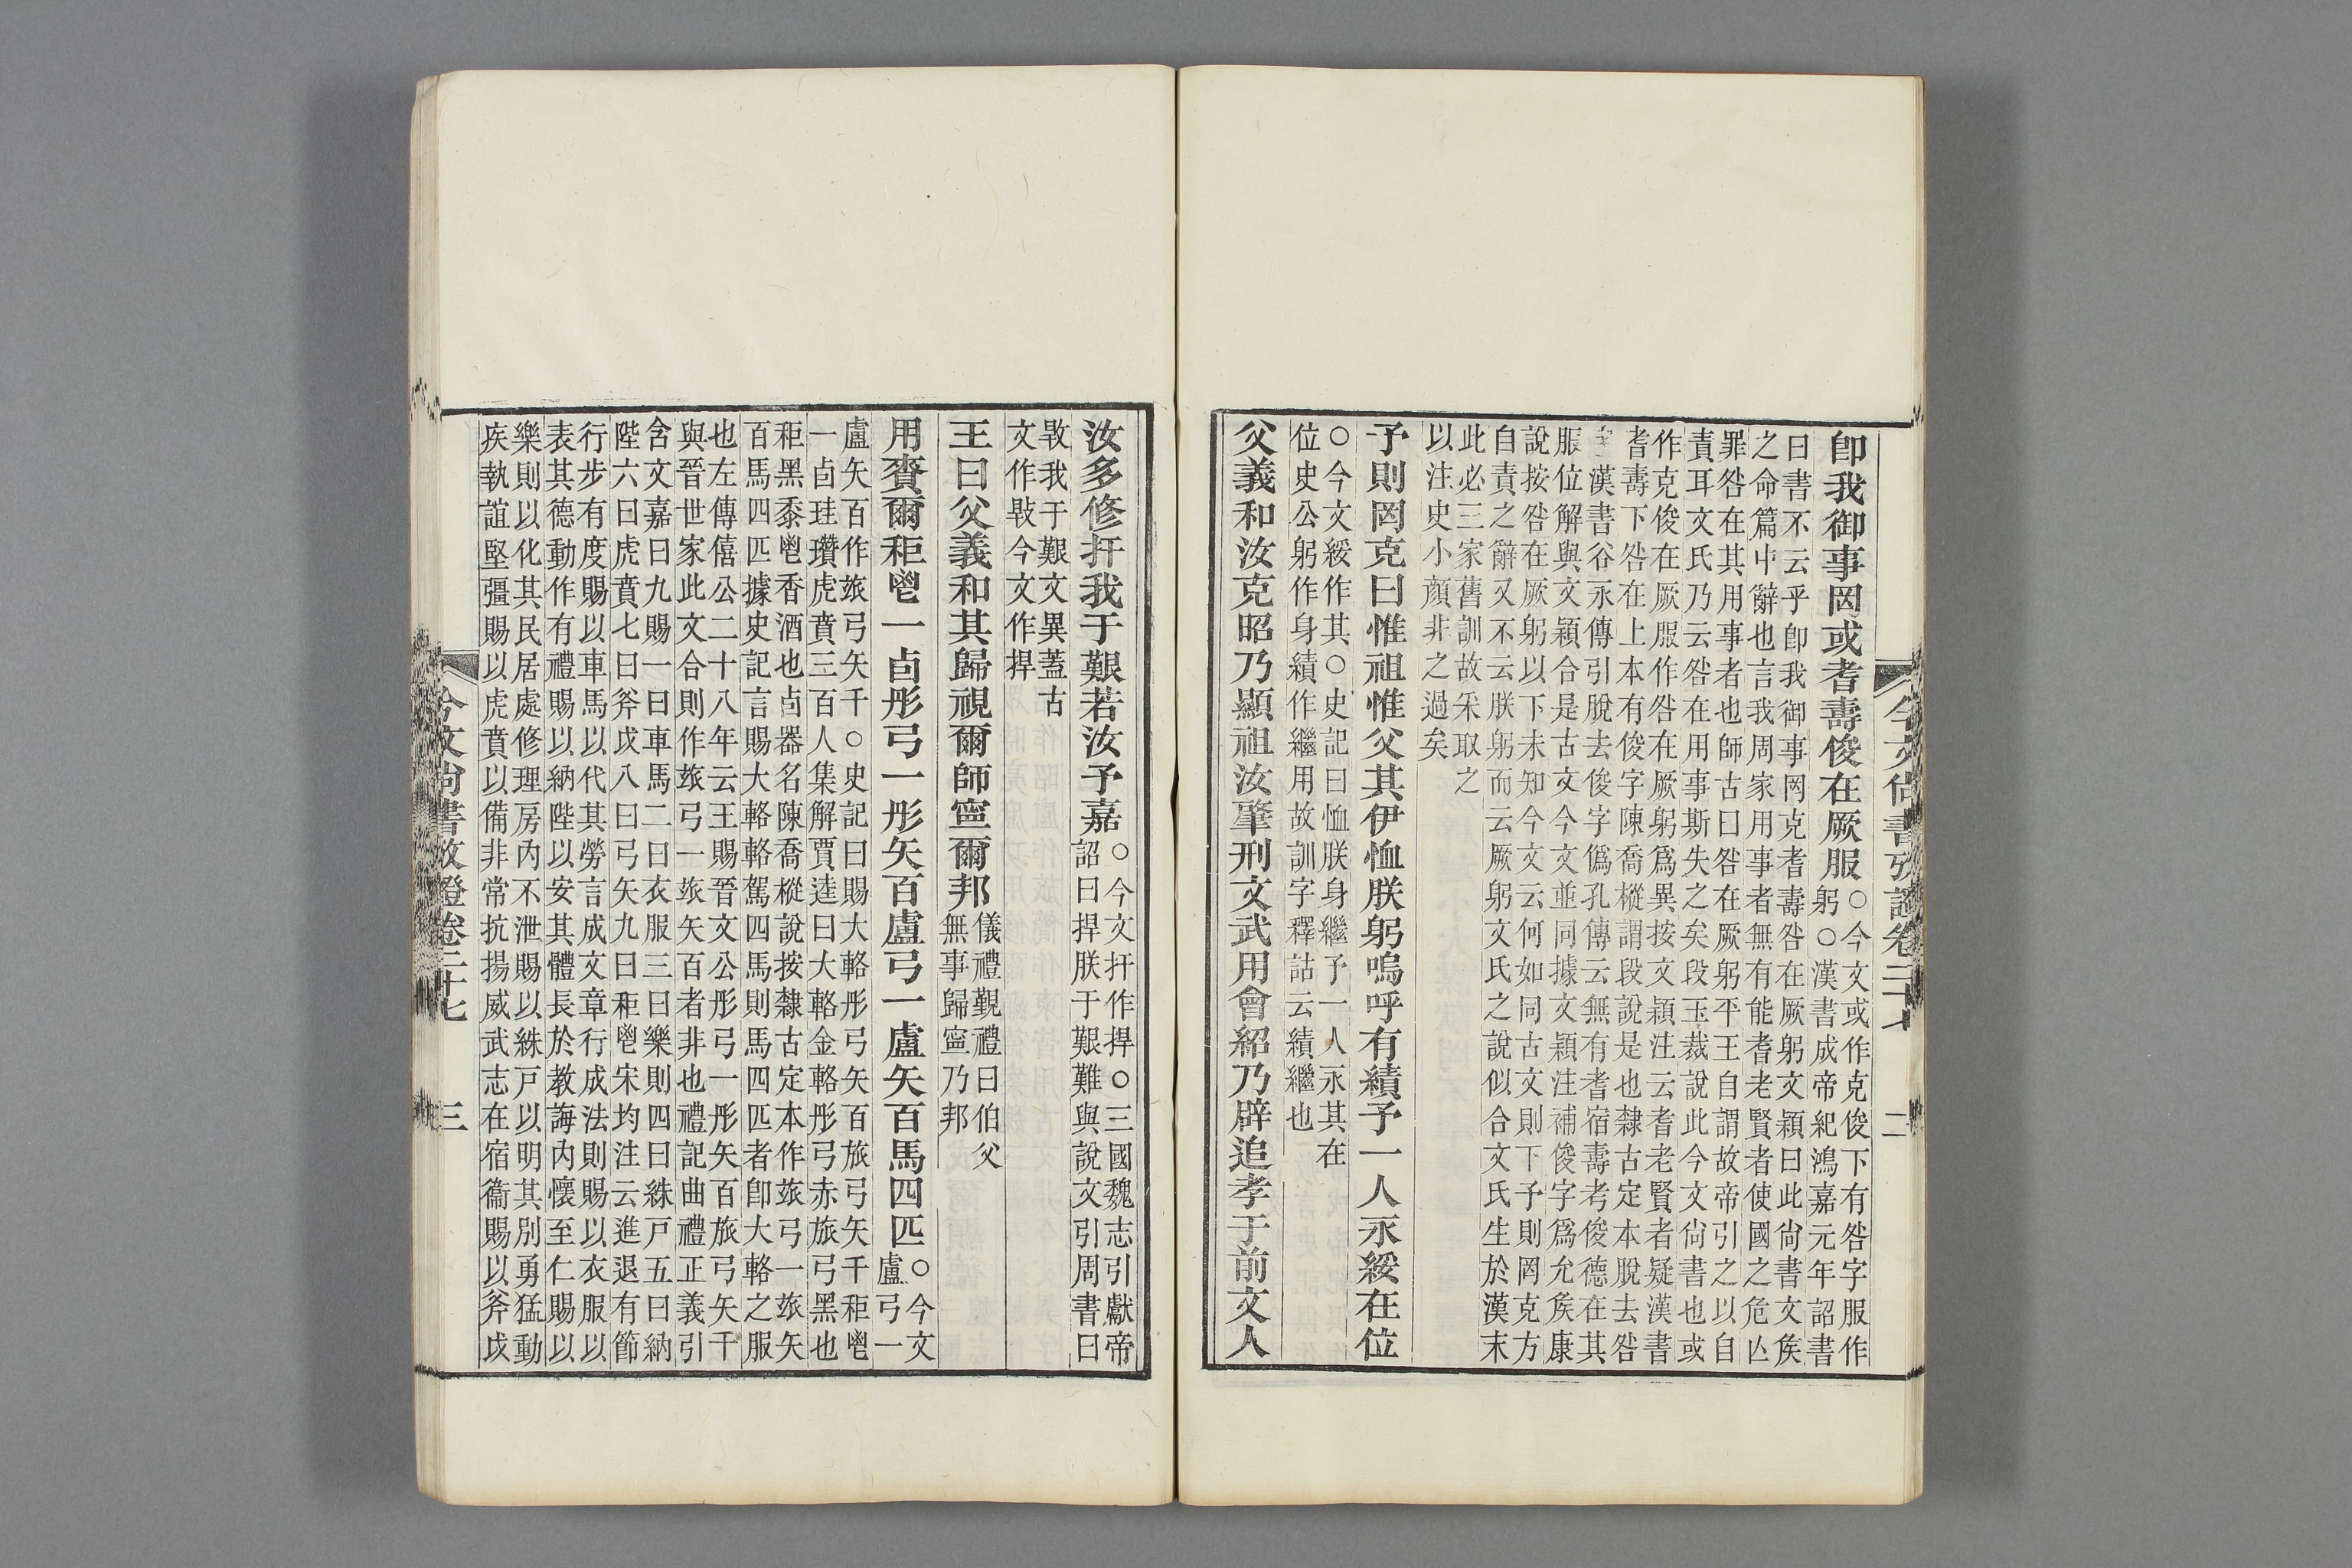 今文尙書攷證卷二十七
二
卽我御事罔或耆壽俊在厥服○今文或作克俊下有咎字服作
躬○漢書成帝紀鴻嘉元年詔書
曰書不云乎卽我御事罔克耆壽咎在厥躬文穎曰此尙書文矦
之命篇中辭也言我周家用事者無有能耆老賢者使國之危亾
罪咎在其用事者也師古曰咎在厥躬平王自謂故帝引之以自
責耳文氏乃云咎在用事斯失之矣段玉裁說此今文尙書也或
作克俊在厥服作咎在厥躬爲異按文穎注云耆老賢者疑漢書
耆壽下咎在上本有俊字陳喬樅謂段說是也隸古定本脫去咎
漢書谷永傳引脫去俊字僞孔傳云無有耆宿壽考俊德在其
服位解與文穎合是古文今文並同據文穎注補俊字爲允矦康
說按咎在厥躬以下未知今文云何如同古文則下予則罔克方
自責之辭又不云朕躬而云厥躬文氏之說似合文氏生於漢末
此必三家舊訓故采取之
以注史小顏非之過矣
予則罔克曰惟祖惟父其伊恤朕躬嗚呼有績予一人永綏在位
○今文綏作其○史記曰恤朕身繼予一人永其在
位史公躬作身績作繼用故訓字釋詁云績繼也
父義和汝克昭乃顯祖汝肇刑文武用會紹乃辟追孝于前文人
汝多修扞我于艱若汝予嘉○今文扞作捍○三國魏志引獻帝
詔曰捍朕于艱難與說文引周書曰
敤我于艱文異蓋古
文作敤今文作捍
王曰父義和其歸視爾師寧爾邦儀禮覲禮曰伯父
無事歸寧乃邦
用賚爾秬鬯一卣彤弓一彤矢百盧弓一盧矢百馬四匹○今文
盧弓一
盧矢百作玈弓矢千○史記曰賜大輅彤弓矢百旅弓矢千秬鬯
一卣珪瓚虎賁三百人集解賈逵曰大輅金輅彤弓赤旅弓黑也
秬黑黍鬯香酒也卣器名陳喬樅說按隸古定本作玈弓一玈矢
百馬四匹據史記言賜大輅輅駕四馬則馬四匹者卽大輅之服
也左傳僖公二十八年云王賜晉文公彤弓一彤矢百旅弓矢千
與晉世家此文合則作玈弓一玈矢百者非也禮記曲禮正義引
含文嘉曰九賜一曰車馬二曰衣服三曰樂則四曰絑戸五曰納
陛六曰虎賁七曰斧戉八曰弓矢九曰秬鬯宋均注云進退有節
行步有度賜以車馬以代其勞言成文章行成法則賜以衣服以
表其德動作有禮賜以納陛以安其體長於教誨內懷至仁賜以
樂則以化其民居處修理房內不泄賜以絑戸以明其別勇猛動
疾執誼堅彊賜以虎賁以備非常抗揚威武志在宿衞賜以斧戉
今文尙書攷證卷二十七
三